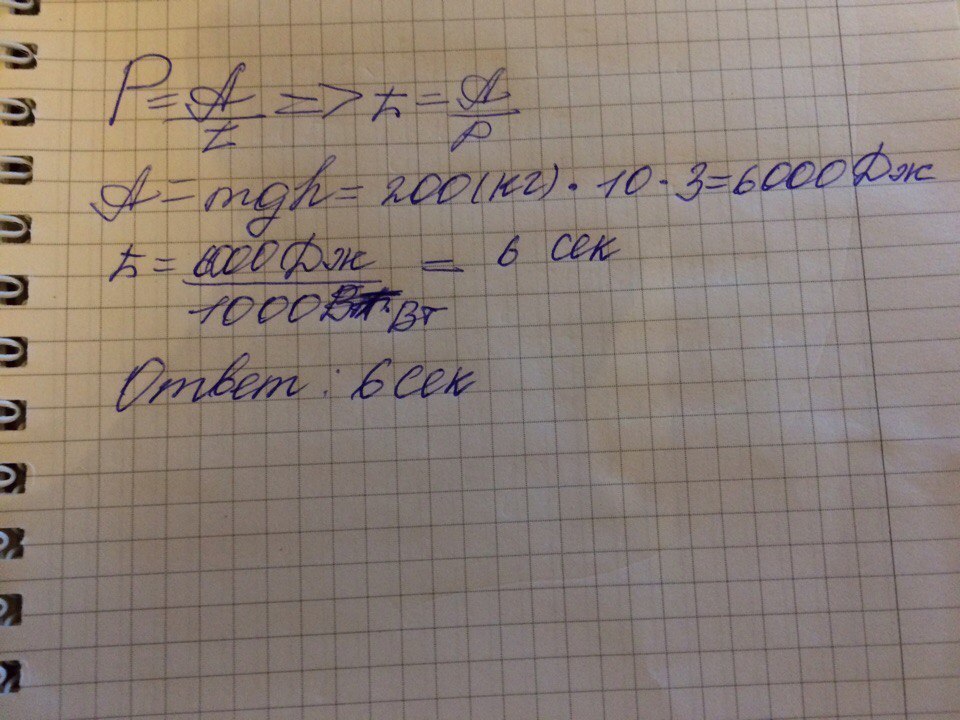 P = A/t => t = A/P
A = mgh = 200(кг) · 10 · 3 = 6000 Дж
t = 6000 Дж / 1000 Вт = 6 сек
Ответ: 6 сек